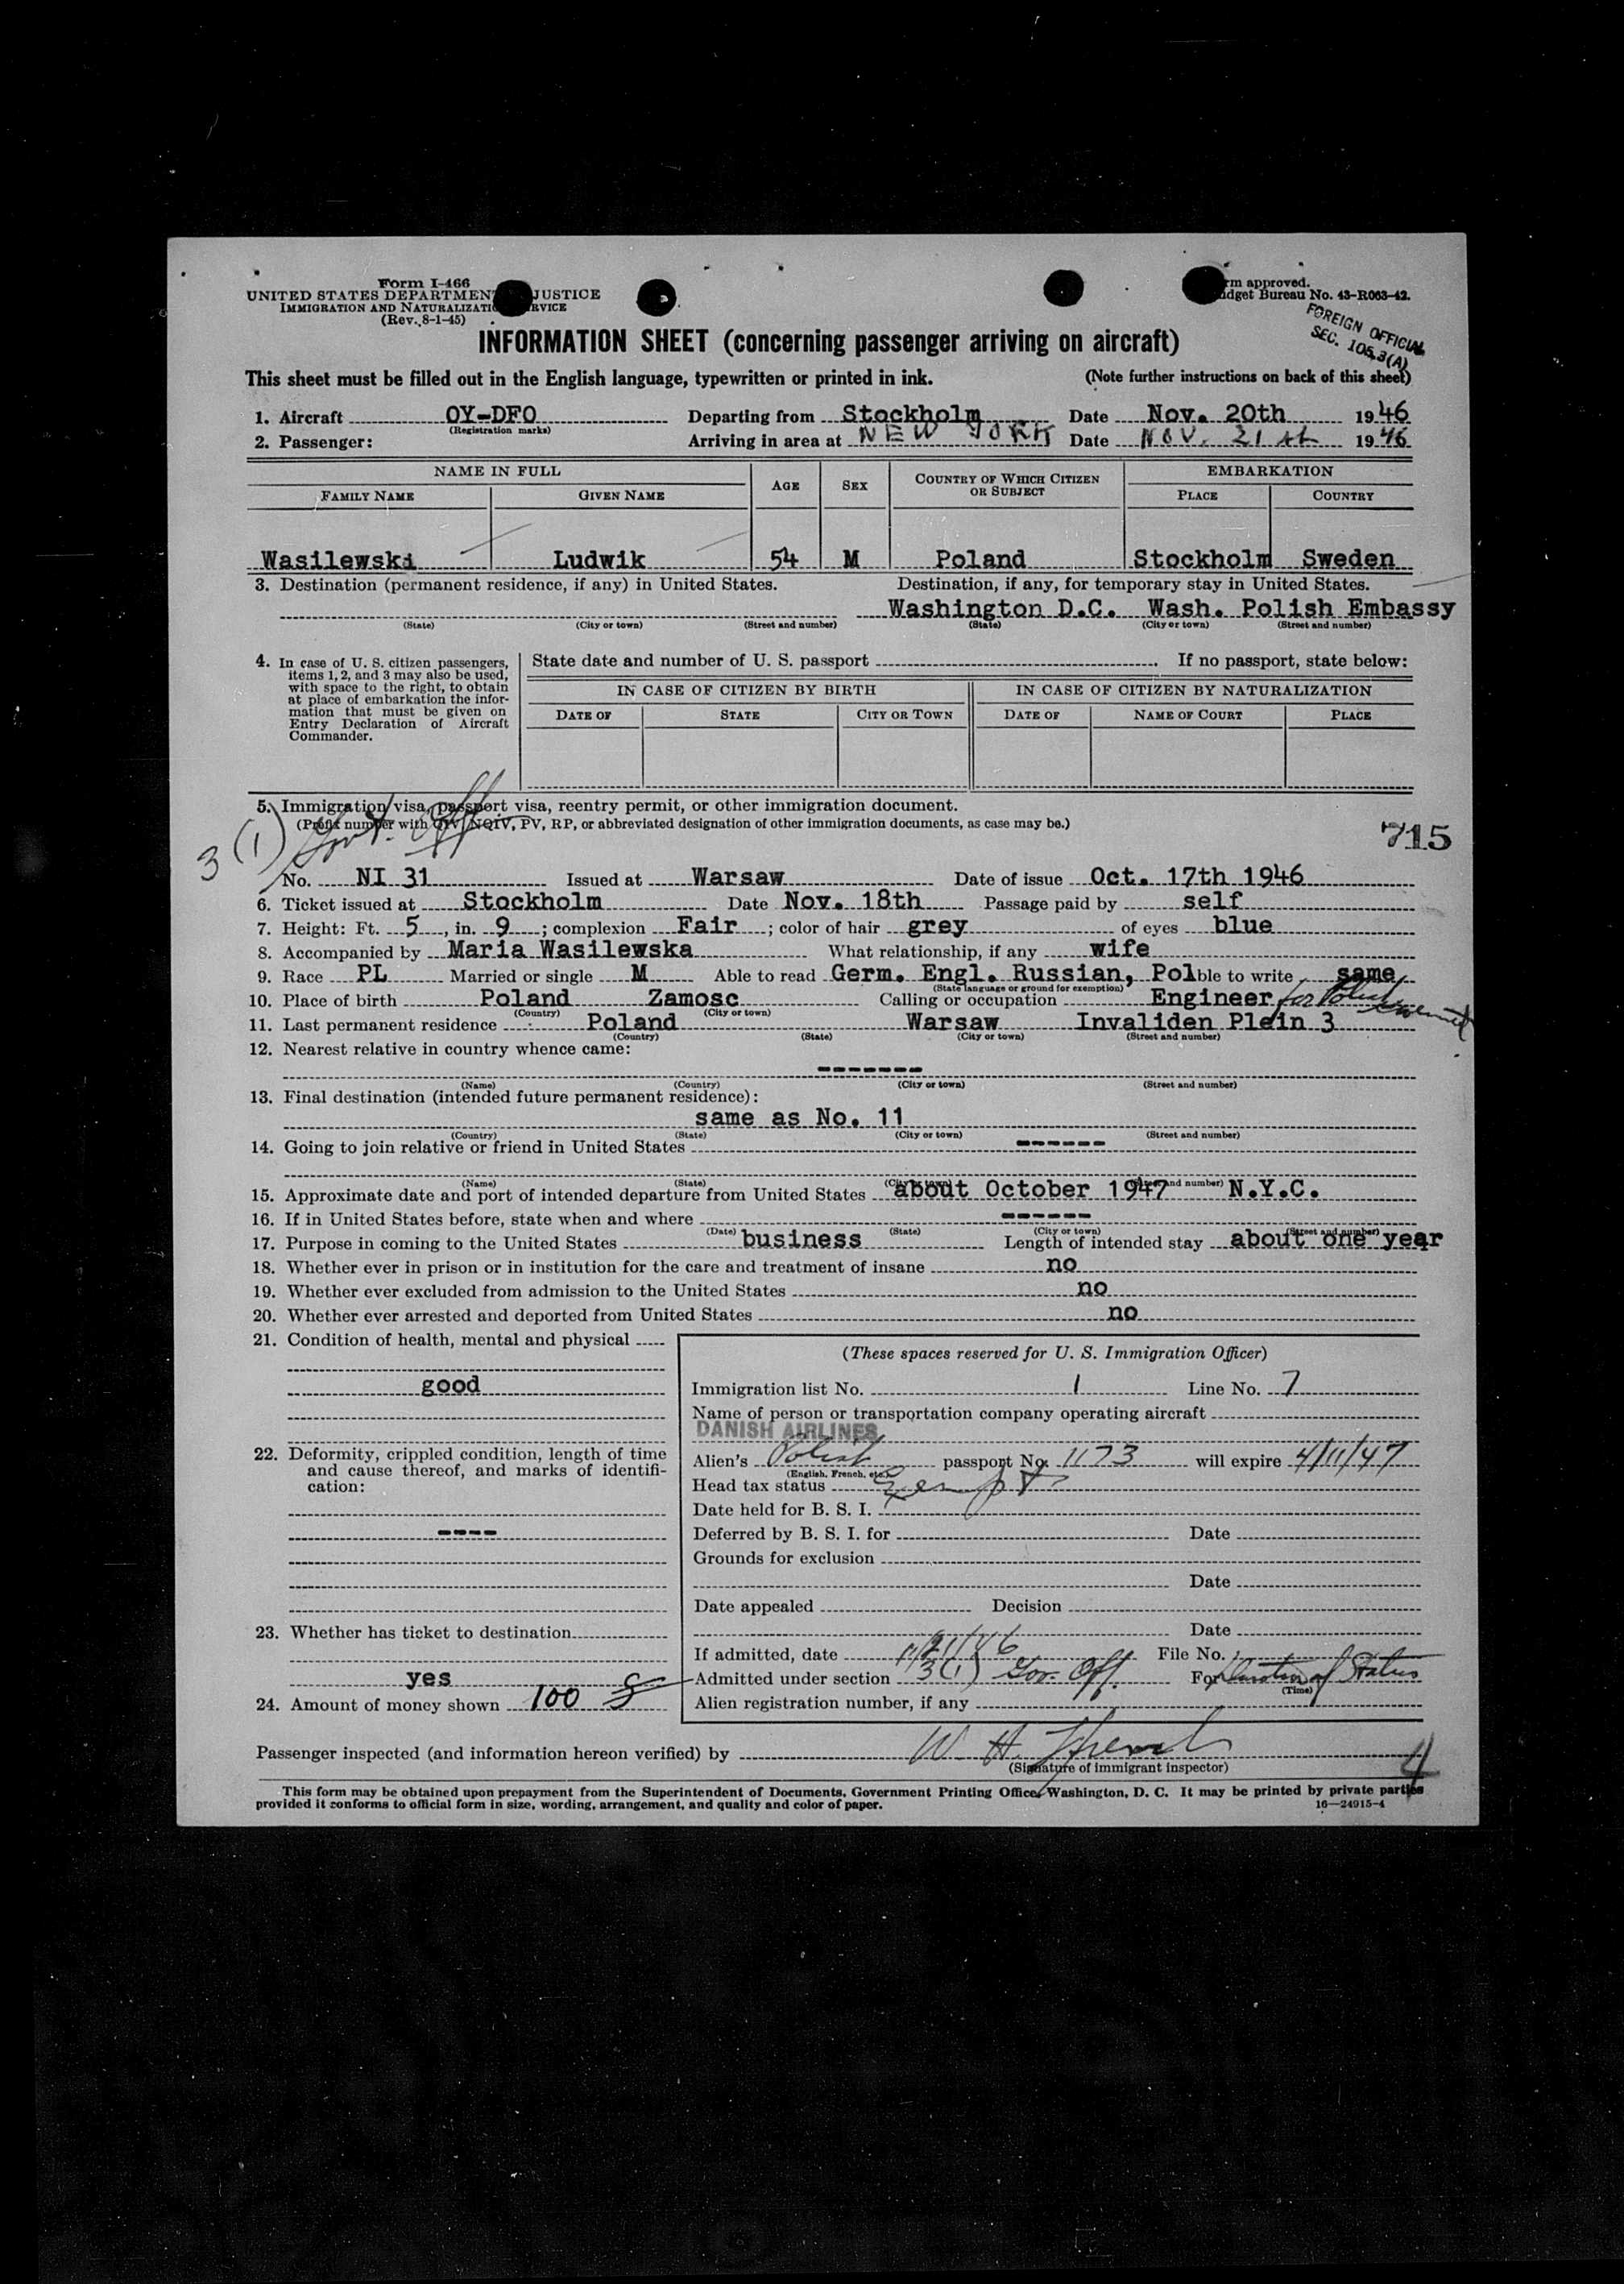 Form I-466
UNITED STATES DEPARTMEN JUSTICE
IMMIGRATION AND NATURALIZATI RVICE
(Rev. 8-1-45)
rm approved.
dget Bureau No. 43-R063-42.
FOREIGN OFFICIAL
SEC. 105.3(A)
INFORMATION SHEET (concerning passenger arriving on aircraft)
This sheet must be filled out in the English language, typewritten or printed in ink. (Note further instructions on back of this sheet)
1. Aircraft OY-DFO Departing from Stockholm Date Nov. 20th 1946
(Registration marks)
2. Passenger: Arriving in area at NEW YORK Date NOV. 21 st 1946
NAME IN FULL AGE SEX COUNTRY OF WHICH CITIZEN OR SUBJECT EMBARKATION
FAMILY NAME GIVEN NAME PLACE COUNTRY
Wasilewski Ludwik 54 M Poland Stockholm Sweden
3. Destination (permanent residence, if any) in United States. Destination, if any, for temporary stay in United States.
Washington D.C. Wash. Polish Embassy
(State) (City or town) (Street and number) (State) (City or town) (Street and number)
4. In case of U. S. citizen passengers, items 1, 2, and 3 may also be used, with space to the right, to obtain at place of embarkation the information that must be given on Entry Declaration of Aircraft Commander.
State date and number of U. S. passport . If no passport, state below:
IN CASE OF CITIZEN BY BIRTH IN CASE OF CITIZEN BY NATURALIZATION
DATE OF STATE CITY OR TOWN DATE OF NAME OF COURT PLACE
5. Immigration visa, passport visa, reentry permit, or other immigration document.
(Prefix number with QIV, NQIV, PV, RP, or abbreviated designation of other immigration documents, as case may be.)
3(1) Govt. Off
715
No. NI 31 Issued at Warsaw Date of issue Oct. 17th 1946
6. Ticket issued at Stockholm Date Nov. 18th Passage paid by self
7. Height: Ft. 5, in. 9; complexion Fair; color of hair grey of eyes blue
8. Accompanied by Maria Wasilewska What relationship, if any wife
9. Race PL Married or single M Able to read Germ. Engl. Russian, Polble to write same
(State language or ground for exemption)
10. Place of birth Poland Zamosc Calling or occupation Engineer for Polish
(Country) (City or town)
11. Last permanent residence Poland Warsaw Invaliden Plein 3
(Country) (State) (City or town) (Street and number)
12. Nearest relative in country whence came:
-------
(Name) (Country) (City or town) (Street and number)
13. Final destination (intended future permanent residence):
same as No. 11
(Country) (State) (City or town) (Street and number)
14. Going to join relative or friend in United States ------
(Name) (State) (City or town) (Street and number)
15. Approximate date and port of intended departure from United States about October 1947 N.Y.C.
16. If in United States before, state when and where ------
(Date) (State) (City or town) (Street and number)
17. Purpose in coming to the United States business Length of intended stay about one year
18. Whether ever in prison or in institution for the care and treatment of insane no
19. Whether ever excluded from admission to the United States no
20. Whether ever arrested and deported from United States no
21. Condition of health, mental and physical
good
22. Deformity, crippled condition, length of time and cause thereof, and marks of identification:
----
23. Whether has ticket to destination
yes
24. Amount of money shown 100 $
(These spaces reserved for U. S. Immigration Officer)
Immigration list No. 1 Line No. 7
Name of person or transportation company operating aircraft
DANISH AIRLINES
Alien's Polish passport No. 1173 will expire 4/11/47
(English, French, etc.)
Head tax status Exempt
Date held for B. S. I.
Deferred by B. S. I. for Date
Grounds for exclusion
Date
Date appealed Decision
Date
If admitted, date 11/21/46 File No.
Admitted under section 3(1) Gov. Off. For Duration of Status
(Time)
Alien registration number, if any
Passenger inspected (and information hereon verified) by W. H.
(Signature of immigrant inspector)
4
This form may be obtained upon prepayment from the Superintendent of Documents, Government Printing Office, Washington, D. C. It may be printed by private parties
provided it conforms to official form in size, wording, arrangement, and quality and color of paper. 16—24915-4